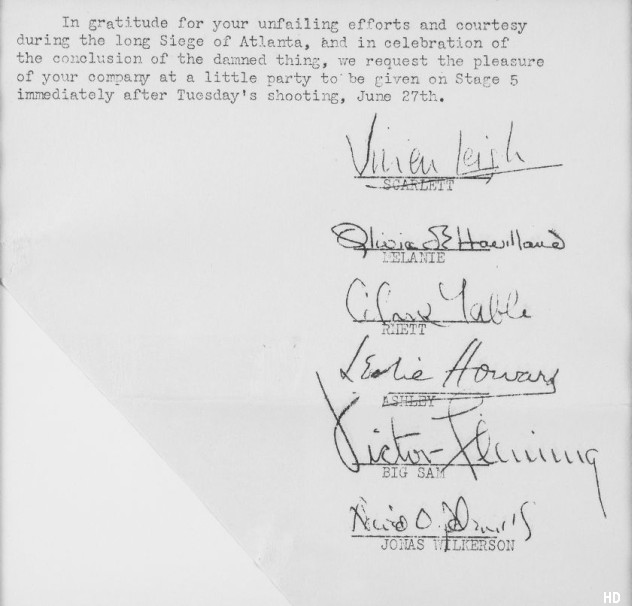 In gratitude for your unfailing efforts and courtesy
during the long Siege of Atlanta, and in celebration of
the conclusion of the damned thing, we request the pleasure
of your company at a little party to be given on Stage 5
immediately after Tuesday's shooting, June 27th.
Vivien Leigh
SCARLETT
Olivia de Havilland
MELANIE
Clark Gable
RHETT
Leslie Howard
ASHLEY
Victor Fleming
BIG SAM
David O. Selznick
JONAS WILKERSON
HD